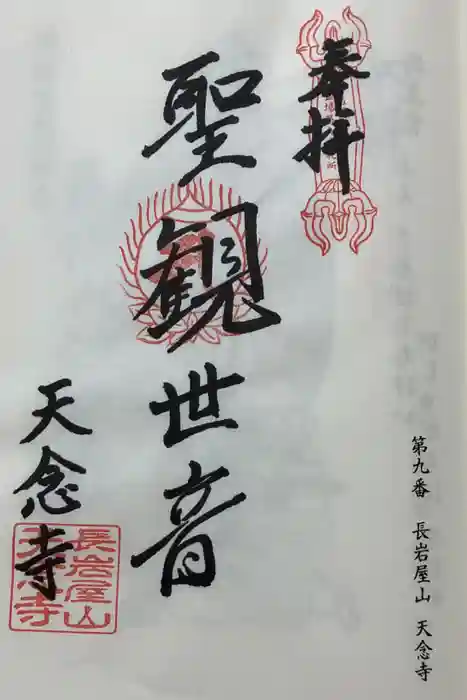 奉拝
聖観世音
天念寺
長岩屋山
天念寺
第九番 長岩屋山 天念寺